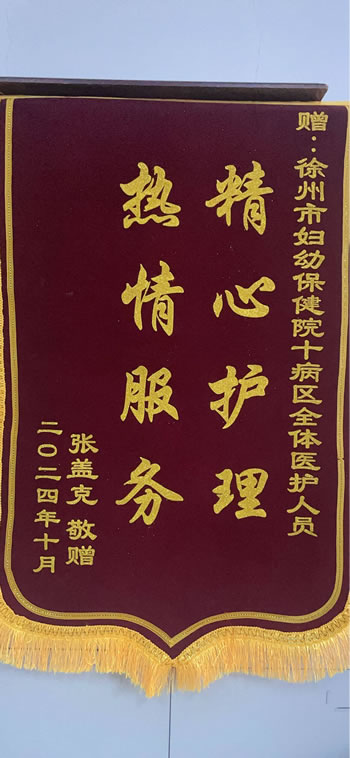 赠：徐州市妇幼保健院十病区全体医护人员
精心护理
热情服务
张盖克 敬赠
二〇二四年十月